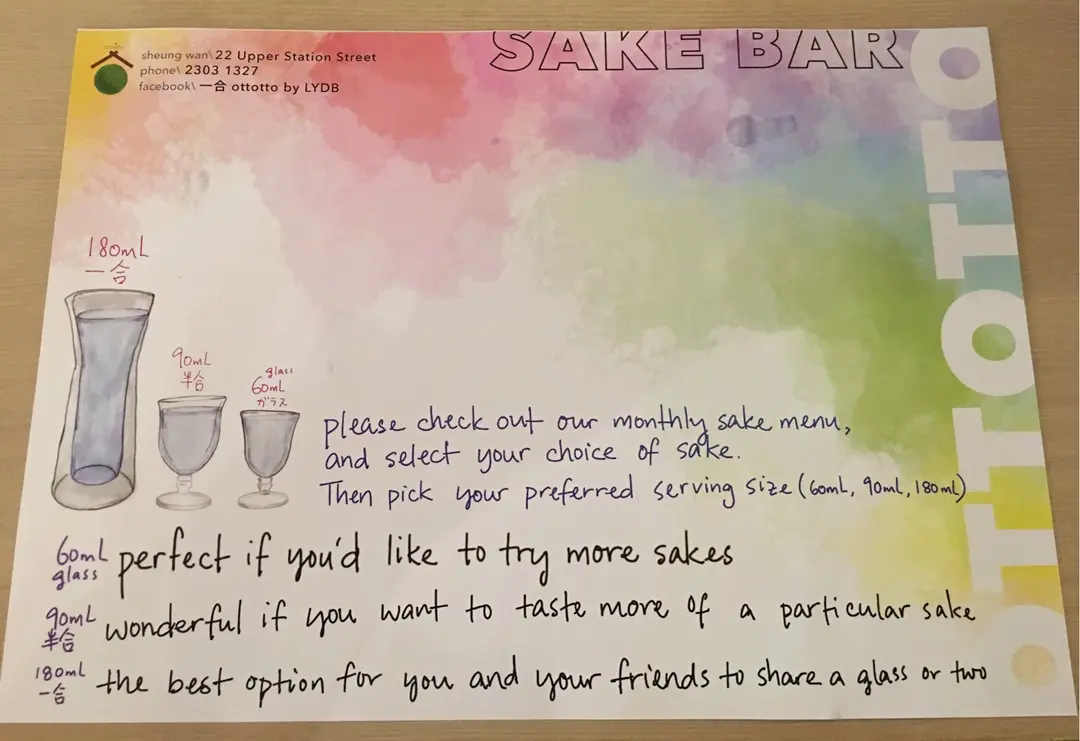 sheung wan\ 22 Upper Station Street
phone\ 2303 1327
facebook\ 一合 ottotto by LYDB
SAKE BAR
OTTOTTO
180mL
一合
90mL
半合
glass
60mL
ガラス
please check out our monthly sake menu,
and select your choice of sake.
Then pick your preferred serving size (60mL, 90mL, 180mL)
60mL glass perfect if you'd like to try more sakes
90mL 半合 wonderful if you want to taste more of a particular sake
180mL 一合 the best option for you and your friends to share a glass or two